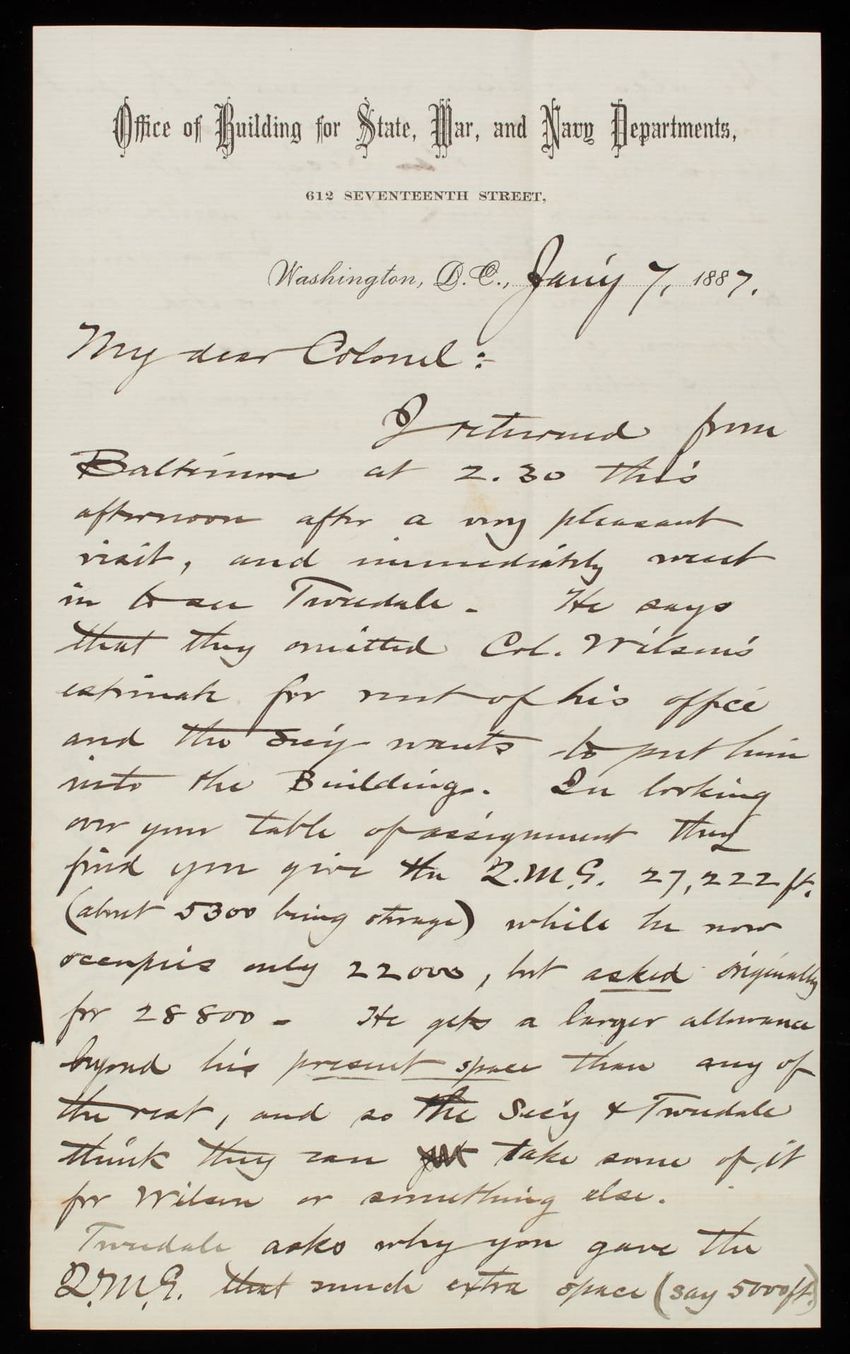 Office of Building for State, War, and Navy Departments,
612 SEVENTEENTH STREET,
Washington, D.C., Jan'y 7, 1887.
My dear Colonel :-
I returned from
Baltimore at 2.30 this
afternoon after a very pleasant
visit, and immediately went
in to see Tweedale - He says
that they omitted Col. Wilson's
estimate for rent of his office
and the Sec'y wants to put him
into the Building. In looking
over your table of assignment they
find you give the Q.M.G. 27,222 ft.
(about 5300 being storage) while he now
occupies only 22000, but asked originally
for 28800 - He gets a larger allowance
beyond his present space than any of
the rest, and so the Sec'y & Tweedale
think they can take some of it
for Wilson or something else.
Tweedale asks why you gave the
Q.M.G. that much extra space (say 5000 ft.)